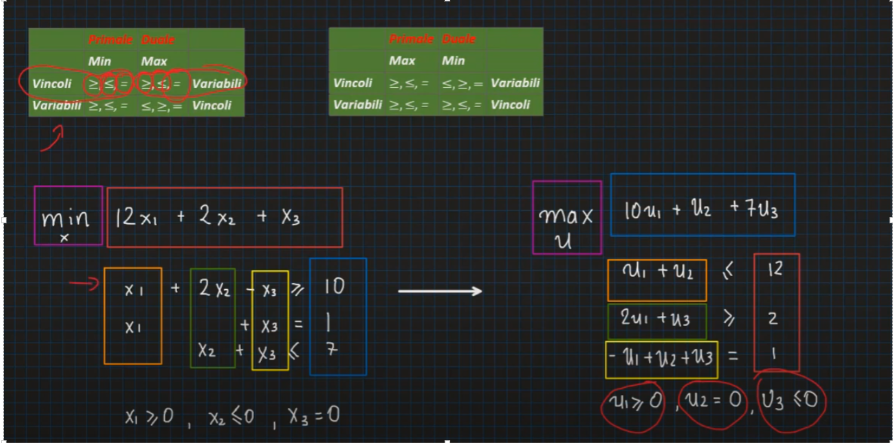 Primale Duale
Min Max
Vincoli ≥,≤,= ≥,≤,= Variabili
Variabili ≥,≤,= ≤,≥,= Vincoli
Primale Duale
Max Min
Vincoli ≥,≤,= ≤,≥,= Variabili
Variabili ≥,≤,= ≥,≤,= Vincoli
min 12x₁ + 2x₂ + x₃
x
x₁ + 2x₂ - x₃ ≥ 10
x₁ + x₃ = 1
x₂ + x₃ ≤ 7
x₁ ≥ 0 , x₂ ≤ 0 , x₃ = 0
max 10u₁ + u₂ + 7u₃
u
u₁ + u₂ ≤ 12
2u₁ + u₃ ≥ 2
- u₁ + u₂ + u₃ = 1
u₁ ≥ 0 , u₂ = 0 , u₃ ≤ 0